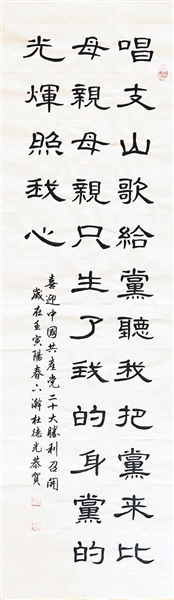 唱支山歌給黨聽我把黨來比
母親母親只生了我的身黨的
光煇照我心
喜迎中國共產党二十大勝利召開
歲在壬寅陽春六瀚杜德光恭賀